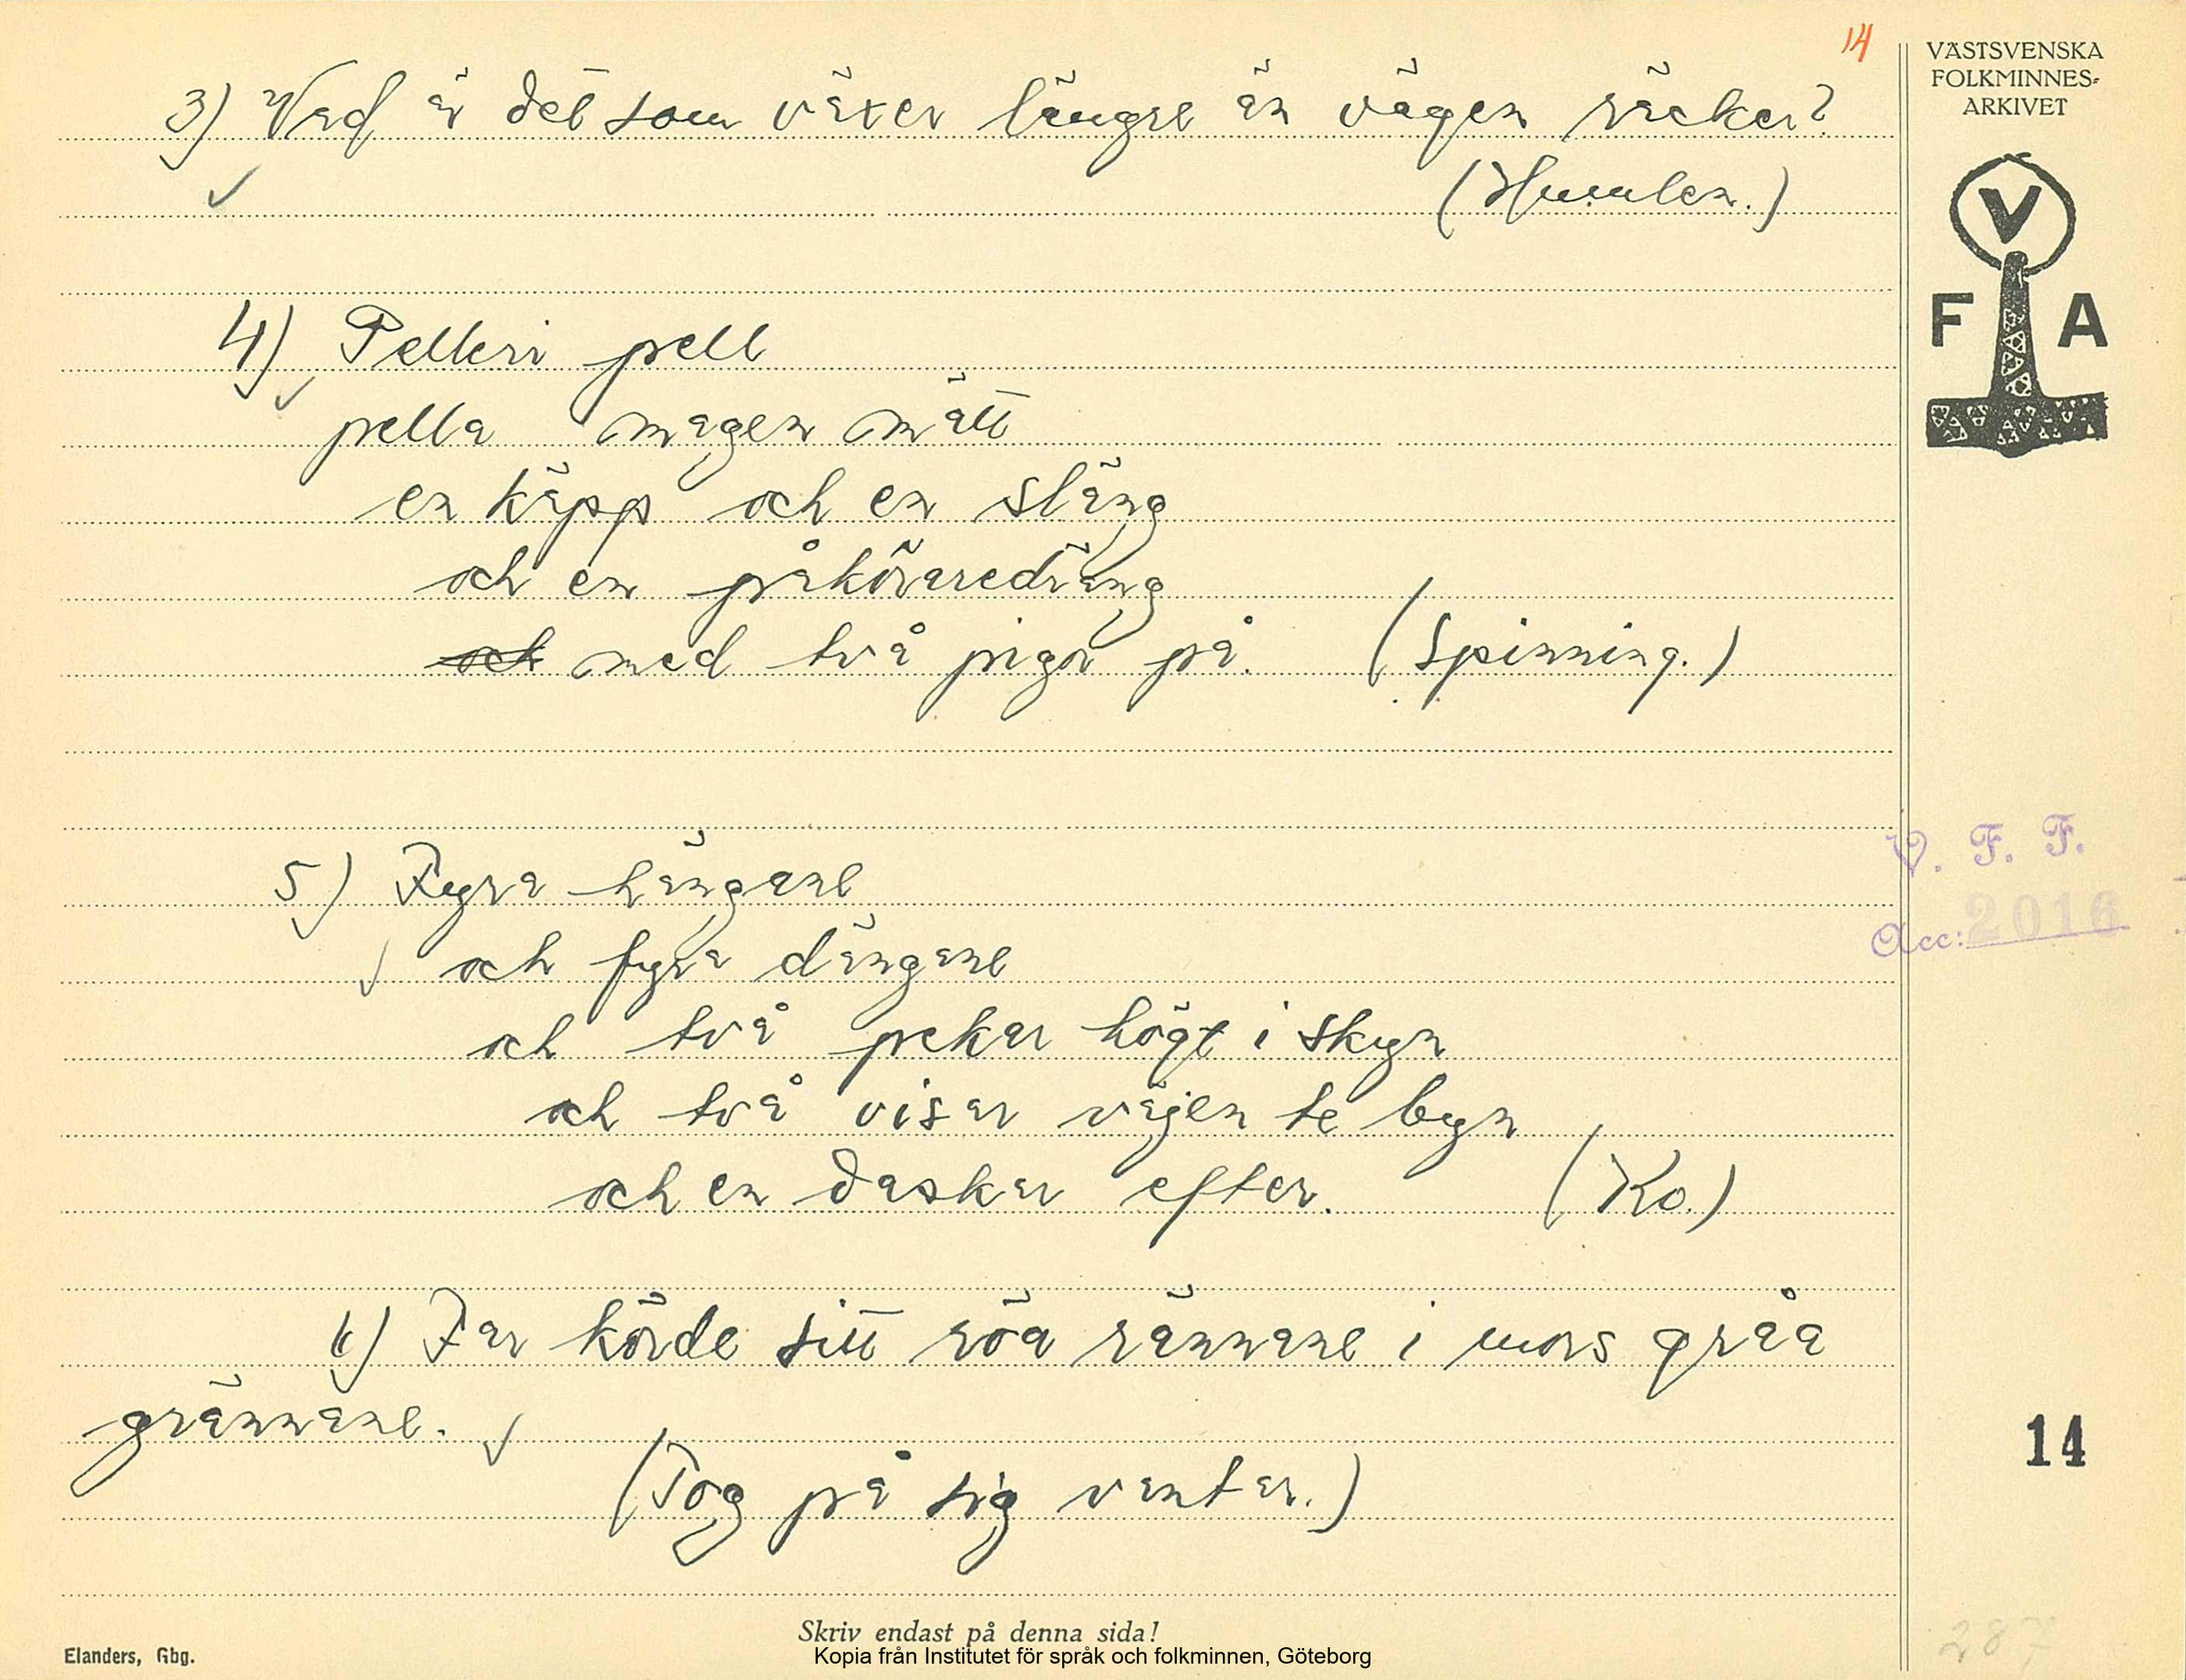 14
VÄSTSVENSKA
FOLKMINNES-
ARKIVET
3) Vad är det som växer längre än vägen räcker?
(Humlen.)
V
F A
4) Pelleri pell
pella magen mätt
en käpp och en släng
och en påköraredräng
och med två pigor på. (Spinning.)
5) Fyra hängane
och fyra dängane
och två pekar högt i skyn
och två visar väjen te byn
och en daskar efter. (Ko.)
V. F. F.
Acc: 2016
6) Far körde sitt röa rännane i mors gråa
grännane.
(Tog på sig vantar.)
14
Skriv endast på denna sida!
Kopia från Institutet för språk och folkminnen, Göteborg
Elanders, Gbg.
287